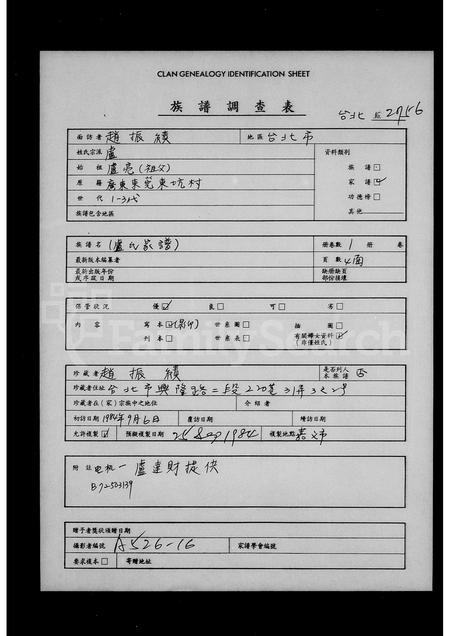 CLAN GENEALOGY IDENTIFICATION SHEET
族譜調查表
台北 2756
面訪者 趙振績 地區 台北市
姓氏宗派 盧 資料類別
始祖 盧亮(祖父) 族譜
原籍 廣東東莞東坑村 家譜
世代 1-3代 功德榜
族譜包含地區 其他
族譜名 (盧氏家譜) 册卷數 1 册 卷
最新版本編纂者 頁數 4面
最新出版年份 缺册缺頁
或序跋日期 部份損壞
保管狀況 優 良 可 劣
內容 寫本 (影印) 世系圖 插圖
刊本 世系表 有關婦女資料
(非僅姓氏)
珍藏者 趙振績 是否列入本族譜 否
珍藏者住址 台北市興隆路二段220巷31弄3之2号
珍藏者在(家)宗族中之地位 介紹者
初訪日期 1984年9月6日 覆訪日期 續訪日期
允許複製 預擬複製日期 25 Sep 1984 複製地點
附註 盧達財提供
B72503139
贈予者獎狀頒贈日期
攝影者編號 A526-16 家譜學會編號
要求複本 寄贈地址
FamilySearch